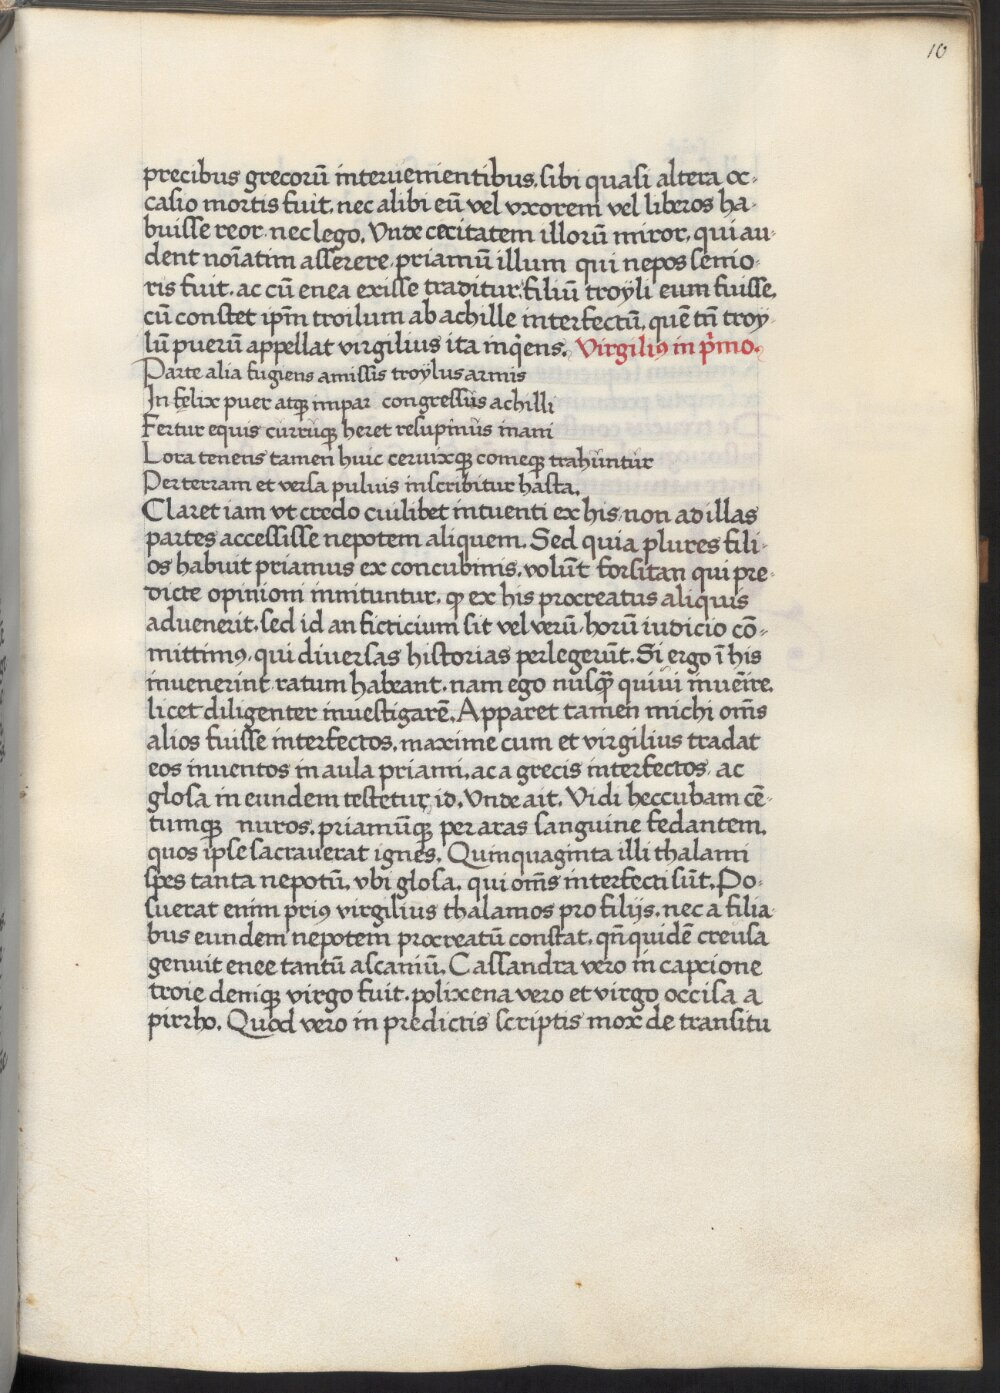 10
precibus grecorū interuenientibus, sibi quasi altera oc-
casio mortis fuit. nec alibi eū vel vxorem vel liberos ha-
buisse reor nec lego. Vnde cecitatem illorū miror, qui au-
dent noīatim asserere priamū illum qui nepos senio-
ris fuit. ac cū enea exisse traditur. filiū troÿli eum fuisse,
cū constet ip̄m troilum ab achille interfectū, quē tn̄ troy-
lū puerū appellat virgilius ita inq̇ens. Virgiliꝰ in p̄mo.
Parte alia fugiens amissis troÿlus armis
In felix puer atqꝫ impar congressus achilli
Fertur equis curruqꝫ heret resupinus inani
Lora tenens tamen huic ceruixqꝫ comeqꝫ trahuntur
Per terram et versa puluis inscribitur hasta.
Claret iam vt credo cuilibet intuenti ex his non ad illas
partes accessisse nepotem aliquem. Sed quia plures fili-
os habuit priamus ex concubinis. volūt forsitan qui pre-
dicte opinioni innituntur. ꝙ ex his procreatus aliquis
aduenerit. sed id an ficticium sit vel verū. horū iudicio cō-
mittimꝰ. qui diuersas historias perlegerūt. Si ergo ī his
inuenerint ratum habeant. nam ego nusqꝫ̄ quiui inuēire.
licet diligenter inuestigarē. Apparet tamen michi om̄s
alios fuisse interfectos. maxime cum et virgilius tradat
eos inuentos in aula priami. ac a grecis interfectos. ac
glosa in eundem testetur id. Vnde ait. Vidi heccubam cē-
tumqꝫ nuros. priamūqꝫ per aras sanguine fedantem.
quos ipse sacrauerat ignes. Quinquaginta illi thalami
spes tanta nepotū. vbi glosa. qui om̄s interfecti sūt. Po-
suerat enim priꝰ virgilius thalamos pro filijs. nec a filia-
bus eundem nepotem procreatū constat. qn̄quidē creusa
genuit enee tantū ascaniū. Cassandra vero in capcione
troie deniqꝫ virgo fuit. polixena vero et virgo occisa a
pirrho. Quod vero in predictis scriptis mox de transitu